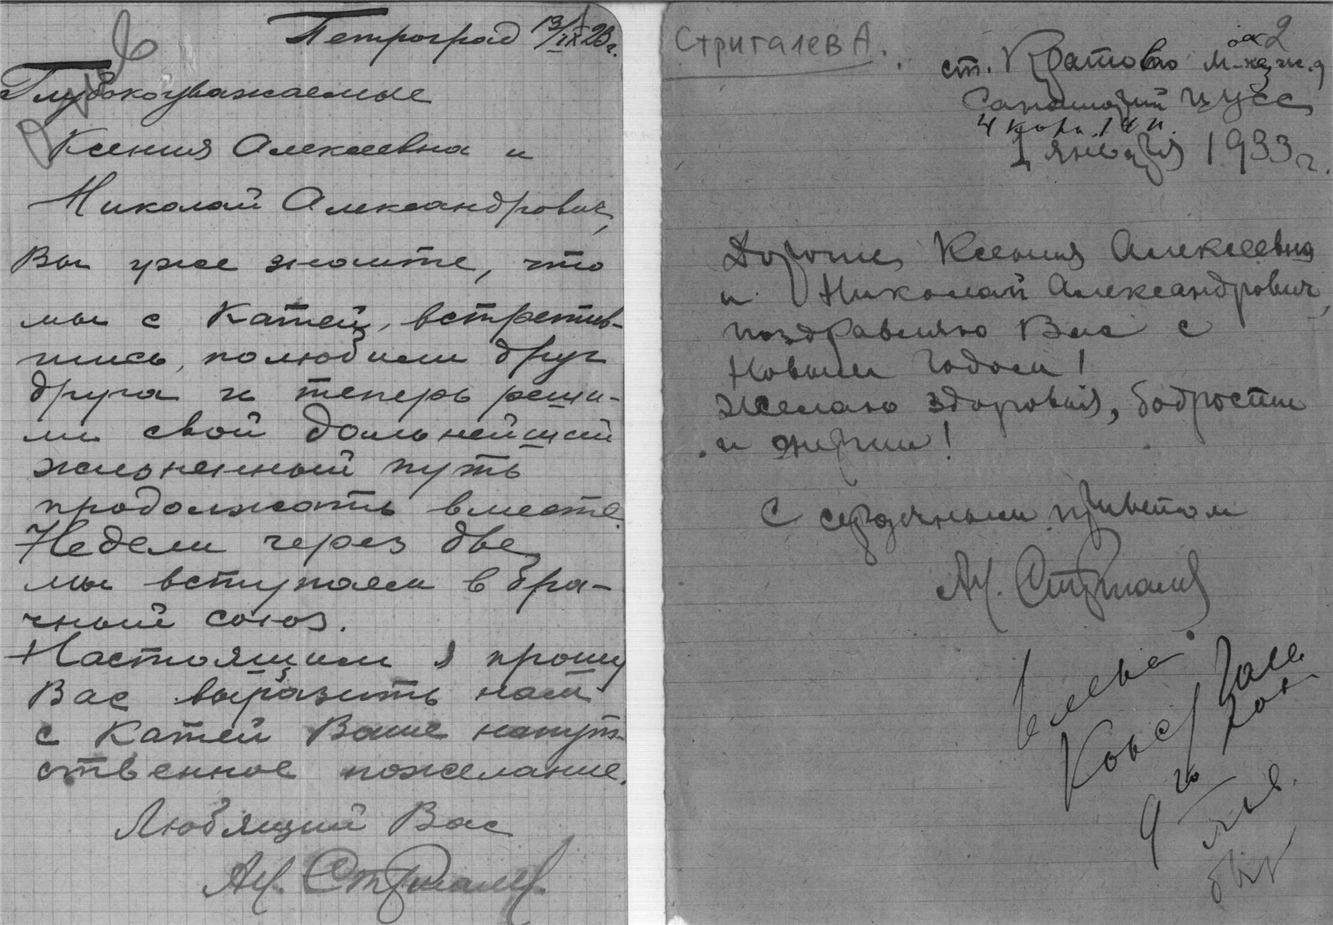 Петроград 13/IX 23 г.
Глубокоуважаемые
Ксения Алексеевна и
Николай Александрович,
Вы уже знаете, что
мы с Катей, встретив-
шись, полюбили друг
друга и теперь реши-
ли свой дальнейший
жизненный путь
продолжать вместе.
Недели через две
мы вступаем в бра-
чный союз.
Настоящим я прошу
Вас выразить нам
с Катей Ваше напут-
ственное пожелание.
Любящий Вас
Ал. Стригалев
Стригалев А.
2
ст. Кратово М-Каз. ж. д
Санаторий ЦУСС
4 корп. 14 п.
1 января 1933 г.
Дорогие Ксения Алексеевна
и Николай Александрович,
поздравляю Вас с
Новым годом!
Желаю здоровья, бодрости
и энергии!
С сердечным приветом
Ал. Стригалев